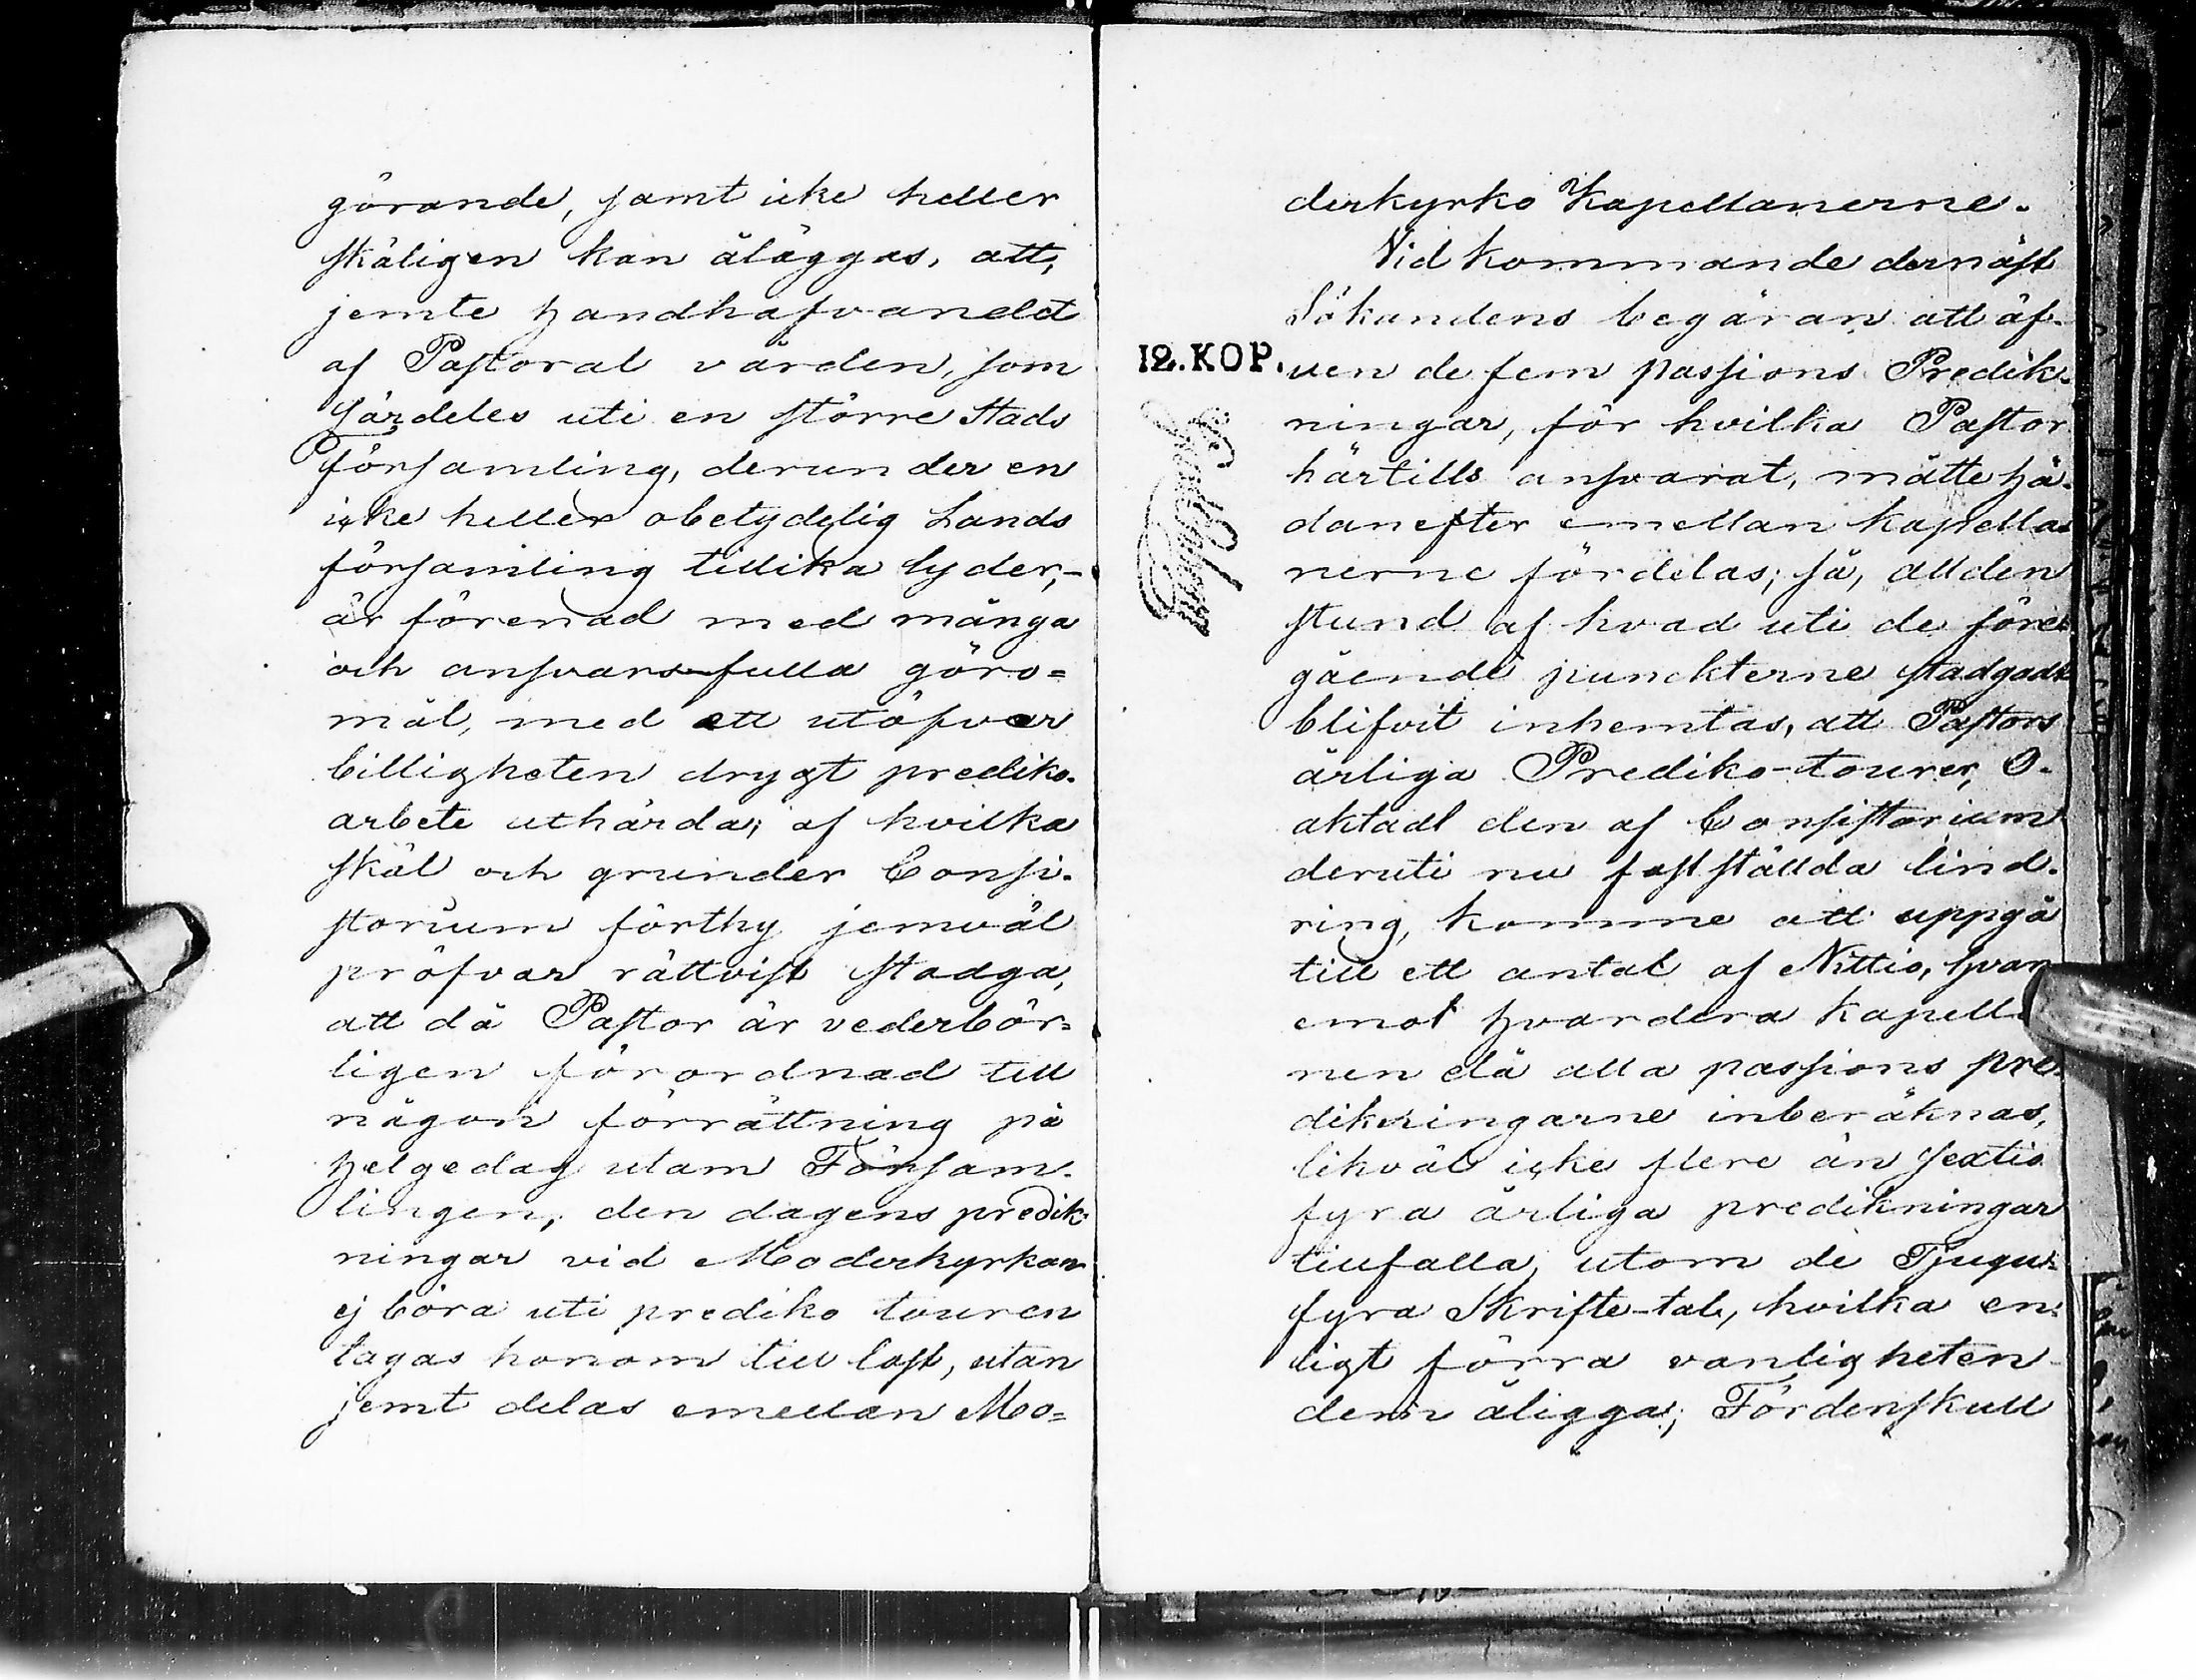 görande, samt icke heller
skäligen kan åläggas, att,
jemte handhafvandet
af Pastoral vården, som
särdeles uti en större Stads
Församling, derunder en
icke heller obetydelig Lands
församling tillika lyder,-
är förenad med många
och ansvarsfulla göro=
mål, med ett utöfver
billigheten drygt prediko-
arbete uthärda; af hvilka
skäl och grunder Consi-
storium förthy jemväl
pröfvar rättvist stadga,
att då Pastor är vederbör-
ligen förordnad till
någon förrättning på
helgedag utom Försam-
lingen, den dagens predik-
ningar vid Moderkyrkan
ej böra uti prediko touren
tagas honom till last, utan
jemt delas emellan Mo=
derkyrko Kapellanerne.
Vid kommande dernäst
Sökandens begäran att äf-
12.KOP.
ven de fem passions Predik-
ningar, för hvilka Pastor
härtills ansvarat, måtte hä-
danefter emellan Kapella-
nerne fördelas; så, allden
stund af hvad uti de före-
gående punckterne stadgadt
blifvit inhemtas, att Pastors
årliga Prediko-tourer, O-
aktadt den af Consistorium
deruti nu fastställda lind-
ring, komme att uppgå
till ett antal af Nittio, hvar
emot hvardera Kapell
nen då alla passions pre-
dikningarne inberäknas,
likväl icke flere än sextio
fyra årliga predikningar
tillfalla, utom de Tjugu-
fyra Skrifte-tal, hvilka en-
ligt förra vanligheten
dem åligga; Fördenskull